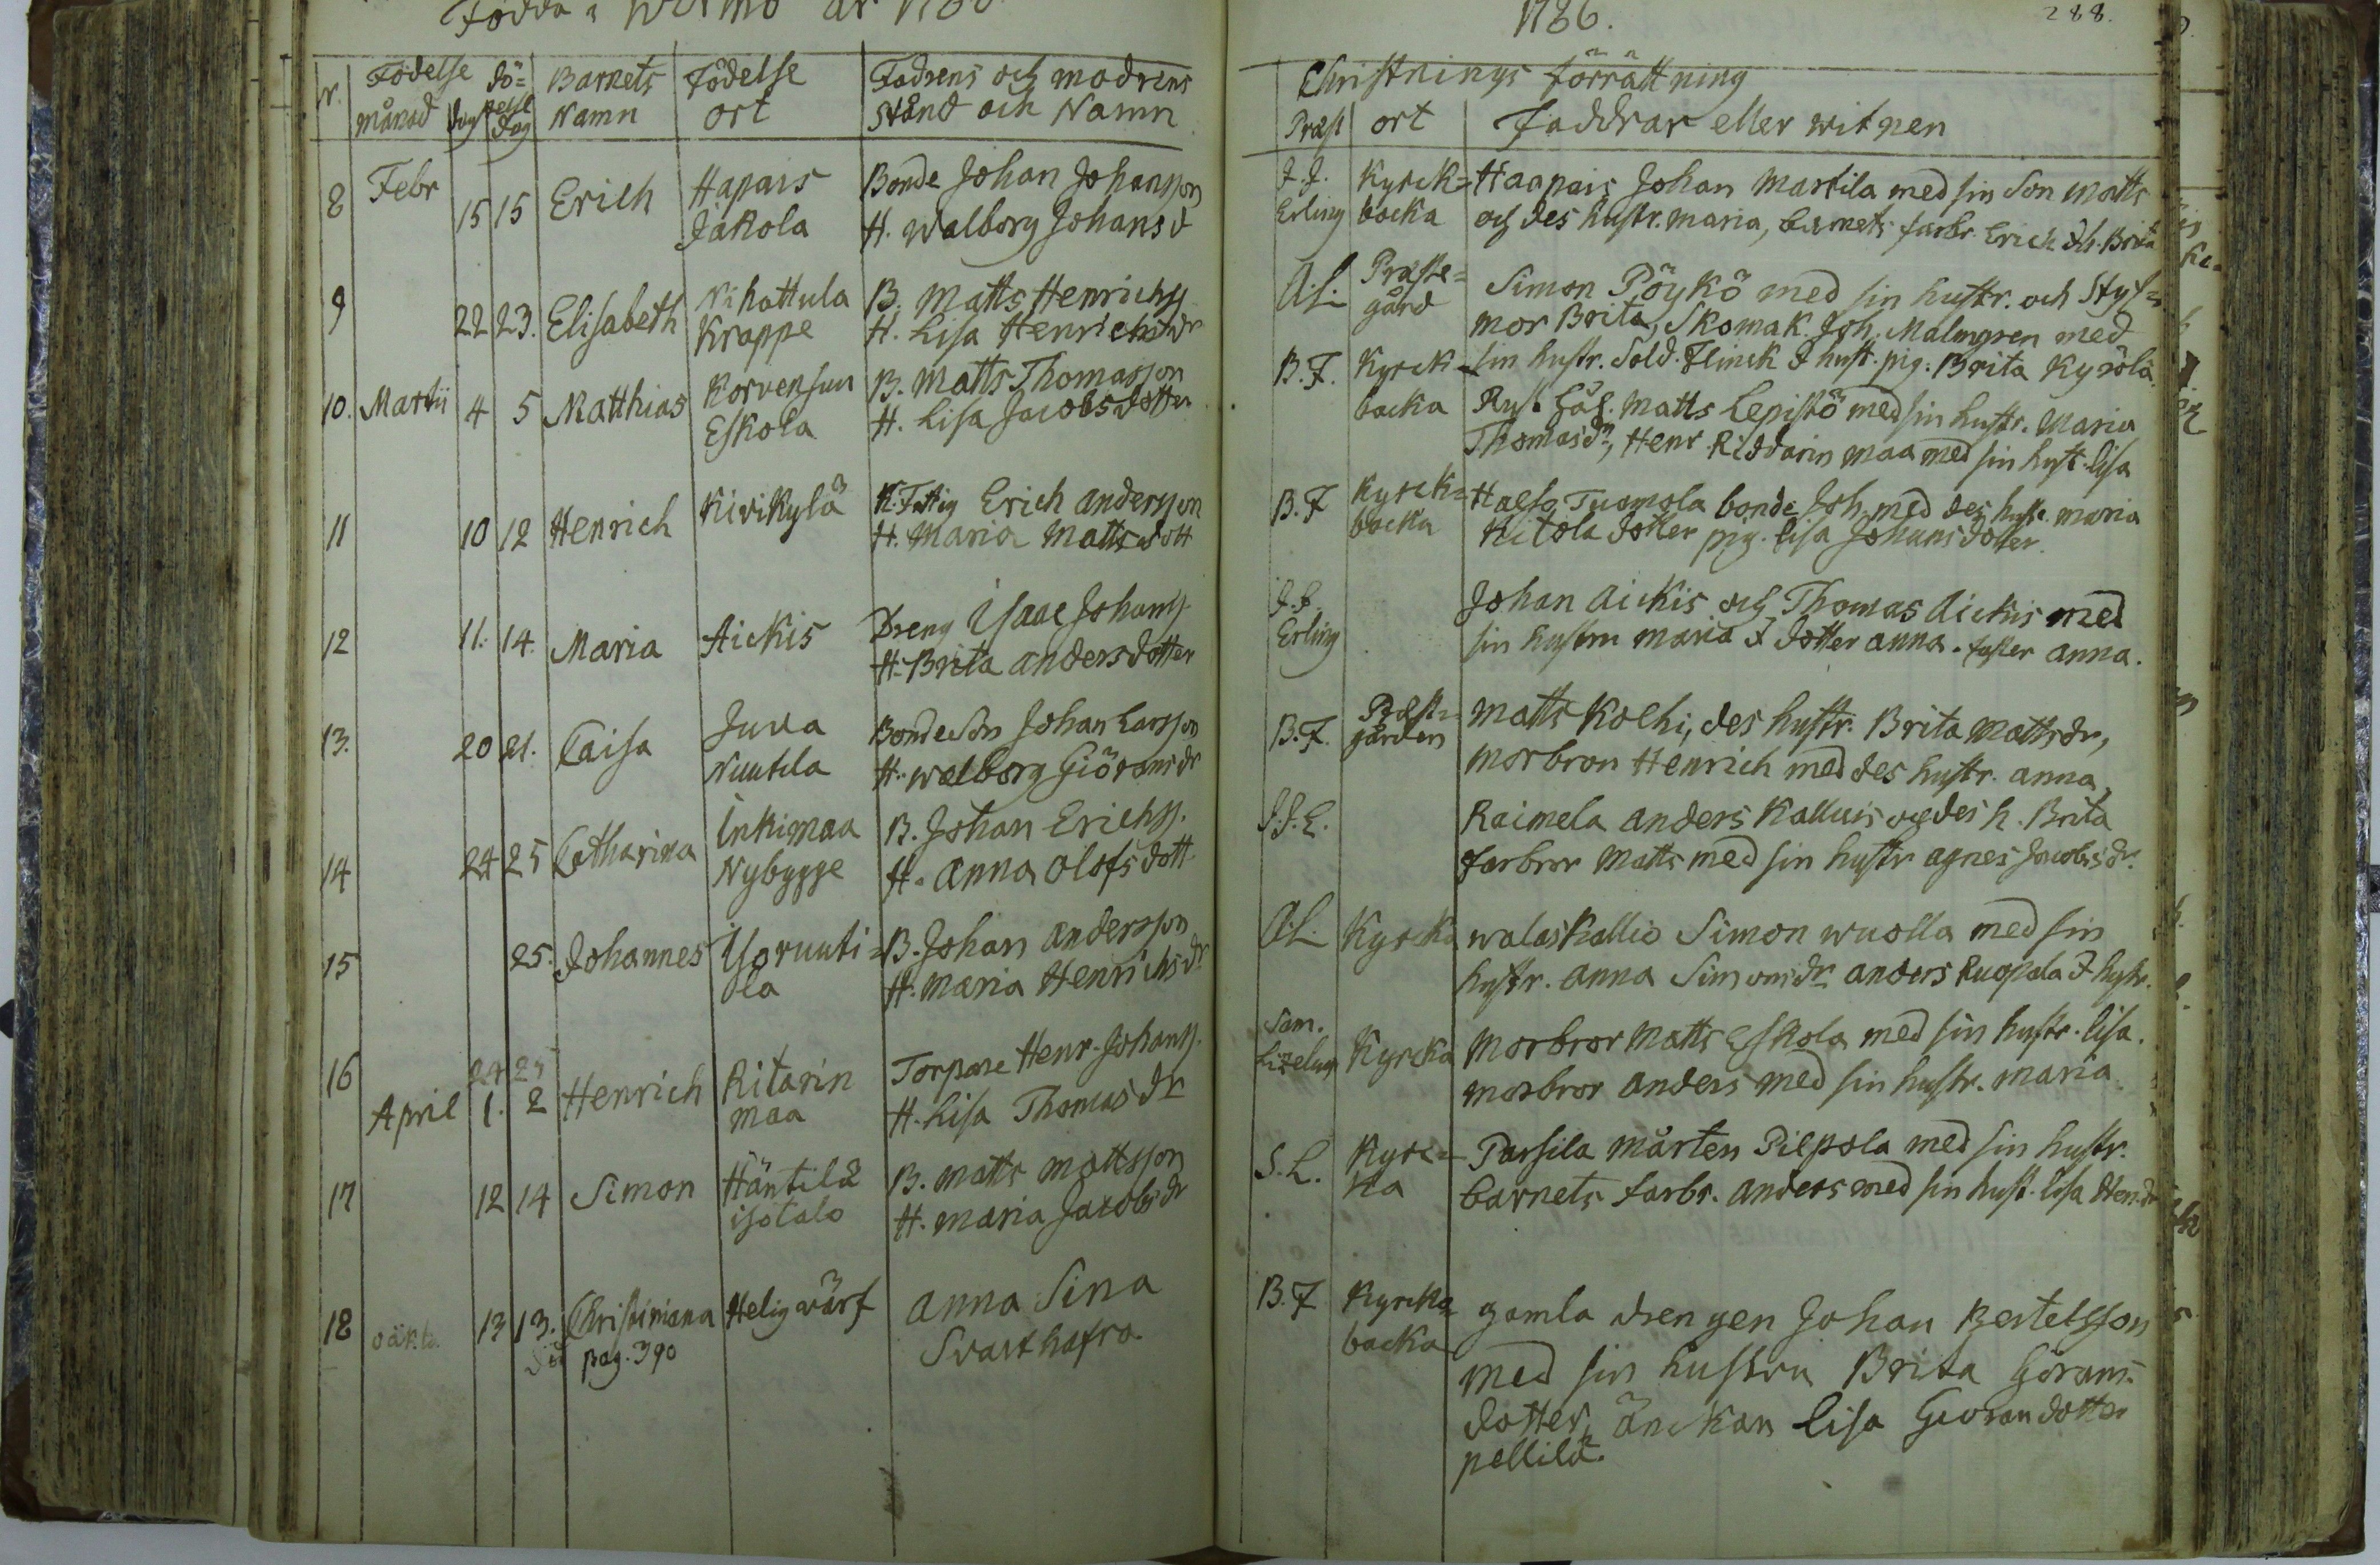 Födda i år 1786
N.
Födelse
månad dag
Dö=
pelse
dag
Barnets
Namn
Födelse
ort
Fadrens och modrens
stånd och Namn
8 Febr 15 15 Erich
Hapais
Jakola
Bonde Johan Johansson
H. Walborg Johansd
9 22 23. Elisabeth
hattula
Krappe
B. Matts Henrichss
H. Lisa Henrichsdr
10. Martii 4 5 Matthias
Korvensuu
Eskola
B. Matts Thomasson
H. Lisa Jacobsdotter
11 10 12 Henrich
Kivikylä
Erich andersson
H. Maria Mattsdott
12 11. 14. Maria
Aickis
Dreng Isaac Johanss
H. Brita andersdotter
13. 20 21. Caisa
Juva
Nuutila
Bondeson Johan Larsson
H. walborg Giöransdr
14 24 25 Catharina
Inkimaa
Nybygge
B. Johan Erichss.
H. anna olofsdott
15 25. Johannes
Isoruuti=
la
B. Johan andersson
H. maria Henrichsdr
16 24 25
April 1. 2 Henrich
Ritarin
maa
Torpare Henr. Johanss.
H. Lisa Thomasdr
17 12 14 Simon
Häntilä
isotalo
B. matts mattsson
H. maria Jacobsdr
18 oäkta 13 13. Christiniana
pag. 390
Heligwärf
anna Sina
Svarthafra.
1786.
288.
Christnings förrättning
Præst
ort
Faddrar eller witnen
J. J.
Erling
Kyrck=
backa
Haapais Johan Martila med sin Son Matts
och des hustr. maria, barnets farbr. Erich & h. Brita
A.L.
Præste=
gård
Simon Pöykö med sin hustr. och Styf=
mor Brita, Skomak. Joh. Malmgren med
sin hustr. Sold. Flinck & hust. pig. Brita Kyrölä
B. F.
Kyrck=
backa
Matts Lepistö med sin hustr. Maria
Thomasdr, Henr Riddarin maa med sin hust. lisa
B. F
Kyrck=
backa
Tuomola bonde Joh. med des hust. maria
Kitola dotter pig. lisa Johansdotter.
J. J.
Erling
Johan Aickis och Thomas Aickis med
sin hustru maria & dotter anna. faster anna.
B. F.
Præst=
gården
Matts Kolhi, des hustr. Brita Mattsdr,
morbron Henrich med des hustr. anna,
J. J. E.
Raimela anders Kalluis och des h. Brita
farbror Matts med sin hustr agnes Jacobsdr.
A.L.
Kyrcka
walaskallio Simon wuolla med sin
hustr. anna Simonsdr anders Ruopala & hustr.
Sam.
Lizelius
Kyrcka
morbror Matts Eskola med sin hustr. lisa.
morbror anders med sin hustr. maria
S. L.
Kyrc=
ka
Parsila mårten Pilpola med sin hustr.
barnets farbr. anders med sin hust. lisa Hendr
B. F
Kyrcko=
backa
gamla drengen Johan Bertelsson
med sin hustru Brita Görans=
dotter, änckan lisa Giörandotter
pellilä.